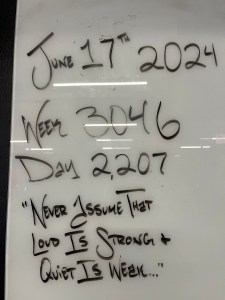 June 17th 2024
Week 3046
Day 2,207
"Never Assume That
Loud Is Strong &
Quiet Is Weak..."